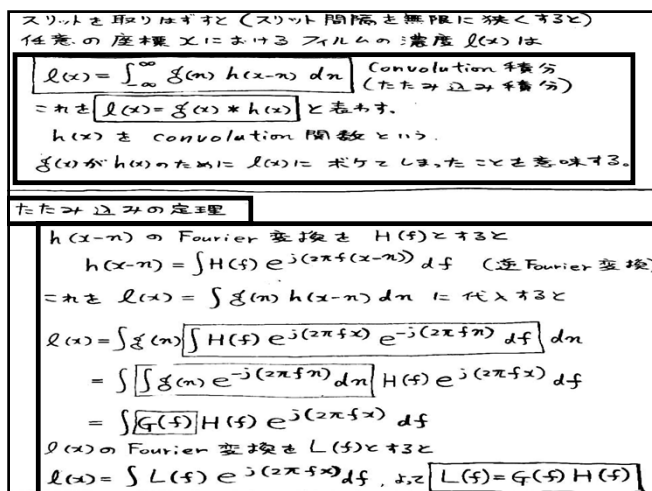 スリットを取りはずすと(スリット間隔を無限に狭くすると)
任意の座標xにおけるフィルムの濃度ℓ(x)は
ℓ(x)=∫_{-∞}^{∞} g(n) h(x-n) dn convolution積分
(たたみ込み積分)
これをℓ(x)=g(x)*h(x)と表わす。
h(x)をconvolution関数という.
g(x)がh(x)のためにℓ(x)にボケてしまったことを意味する。
たたみ込みの定理
h(x-n)のFourier変換をH(f)とすると
h(x-n)=∫H(f) e^{j(2πf(x-n))} df (逆Fourier変換)
これをℓ(x)=∫g(n) h(x-n) dnに代入すると
ℓ(x)=∫g(n)∫H(f) e^{j(2πfx)} e^{-j(2πfn)} df dn
=∫∫g(n) e^{-j(2πfn)} dn H(f) e^{j(2πfx)} df
=∫G(f)H(f) e^{j(2πfx)} df
ℓ(x)のFourier変換をL(f)とすると
ℓ(x)=∫L(f) e^{j(2πfx)} df, よって L(f)=G(f)H(f)